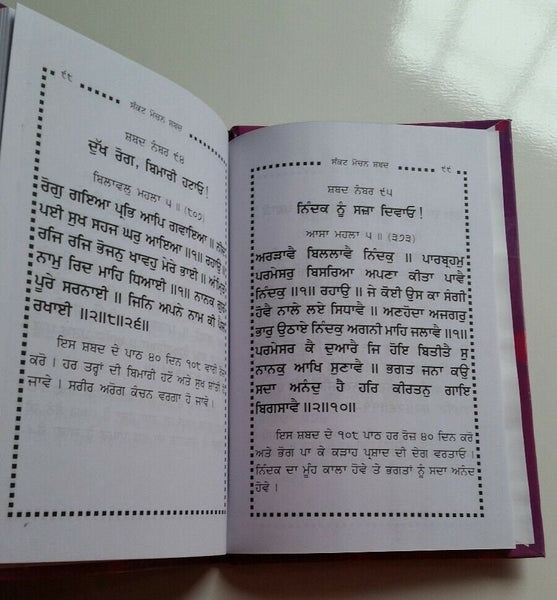 ੯੮
ਸੰਕਟ ਮੋਚਨ ਸ਼ਬਦ
ਸ਼ਬਦ ਨੰਬਰ ੯੪
ਦੁੱਖ ਰੋਗ, ਬਿਮਾਰੀ ਹਟਾਓ!
ਬਿਲਾਵਲੁ ਮਹਲਾ ੫ ॥ (੮੦੭)
ਰੋਗੁ ਗਇਆ ਪ੍ਰਭਿ ਆਪਿ ਗਵਾਇਆ ॥
ਪਈ ਸੁਖ ਸਹਜ ਘਰੁ ਆਇਆ ॥੧॥ ਰਹਾਉ
ਰਜਿ ਰਜਿ ਭੋਜਨੁ ਖਾਵਹੁ ਮੇਰੇ ਭਾਈ ॥
ਨਾਮੁ ਰਿਦ ਮਾਹਿ ਧਿਆਈ ॥੧॥ ਨਾਨਕ
ਪੂਰੇ ਸਰਨਾਈ ॥ ਜਿਨਿ ਅਪਨੇ ਨਾਮ ਕੀ
ਰਖਾਈ ॥੨॥੮॥੨੬॥
ਇਸ ਸ਼ਬਦ ਦੇ ਪਾਠ ੪੦ ਦਿਨ ੧੦੮ ਵਾਰੀ
ਕਰੋ। ਹਰ ਤਰ੍ਹਾਂ ਦੀ ਬਿਮਾਰੀ ਹਟੇ ਅਤੇ ਸੁਖ ਸ਼ਾਂਤੀ
ਜਾਵੇ। ਸਰੀਰ ਅਰੋਗ ਕੰਚਨ ਵਰਗਾ ਹੋ ਜਾਵੇ।
ਸੰਕਟ ਮੋਚਨ ਸ਼ਬਦ
੯੯
ਸ਼ਬਦ ਨੰਬਰ ੯੫
ਨਿੰਦਕ ਨੂੰ ਸਜ਼ਾ ਦਿਵਾਓ!
ਆਸਾ ਮਹਲਾ ੫ ॥ (੩੭੩)
ਅਰੜਾਵੈ ਬਿਲਲਾਵੈ ਨਿੰਦਕੁ ॥ ਪਾਰਬ੍ਰਹਮੁ
ਪਰਮੇਸਰੁ ਬਿਸਰਿਆ ਅਪਣਾ ਕੀਤਾ ਪਾਵੈ
ਨਿੰਦਕੁ ॥੧॥ ਰਹਾਉ ॥ ਜੇ ਕੋਈ ਉਸ ਕਾ ਸੰਗੀ
ਹੋਵੈ ਨਾਲੇ ਲਏ ਸਿਧਾਵੈ ॥ ਅਣਹੋਦਾ ਅਜਗਰੁ
ਭਾਰੁ ਉਠਾਏ ਨਿੰਦਕੁ ਅਗਨੀ ਮਾਹਿ ਜਲਾਵੈ ॥੧॥
ਪਰਮੇਸਰ ਕੈ ਦੁਆਰੈ ਜਿ ਹੋਇ ਬਿਤੀਤੈ ਸੁ
ਨਾਨਕੁ ਆਖਿ ਸੁਣਾਵੈ ॥ ਭਗਤ ਜਨਾ ਕਉ
ਸਦਾ ਅਨੰਦੁ ਹੈ ਹਰਿ ਕੀਰਤਨੁ ਗਾਇ
ਬਿਗਸਾਵੈ ॥੨॥੧੦॥
ਇਸ ਸ਼ਬਦ ਦੇ ੧੦੮ ਪਾਠ ਹਰ ਰੋਜ਼ ੪੦ ਦਿਨ ਕਰੋ
ਅਤੇ ਭੋਗ ਪਾ ਕੇ ਕੜਾਹ ਪ੍ਰਸ਼ਾਦ ਦੀ ਦੇਗ ਵਰਤਾਓ।
ਨਿੰਦਕ ਦਾ ਮੂੰਹ ਕਾਲਾ ਹੋਵੇ ਤੇ ਭਗਤਾਂ ਨੂੰ ਸਦਾ ਅਨੰਦ
ਹੋਵੇ।